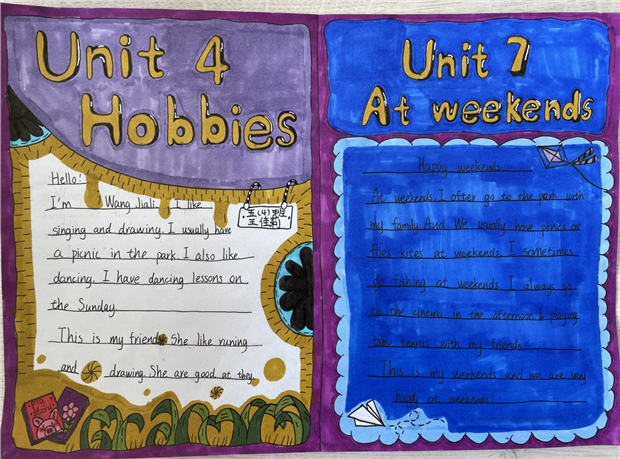 Unit 4
Hobbies
Hello!
I'm Wang Jiali. I like
五(4)班
王佳莉
singing and drawing. I usually have
a picnic in the park. I also like
dancing. I have dancing lessons on
the Sunday.
This is my friends. She like runing
and drawing. She are good at they.
Unit 7
At weekends
Happy weekends
At weekends. I ofter go to the park with
my family. And. We usually have picnics or
flies kites at weekends. I sometimes
go fishing at weekends. I always go
to the cinema in the afternoon. I playing
table tennis with my friends.
This is my weekends and we are very
happy at weekends!